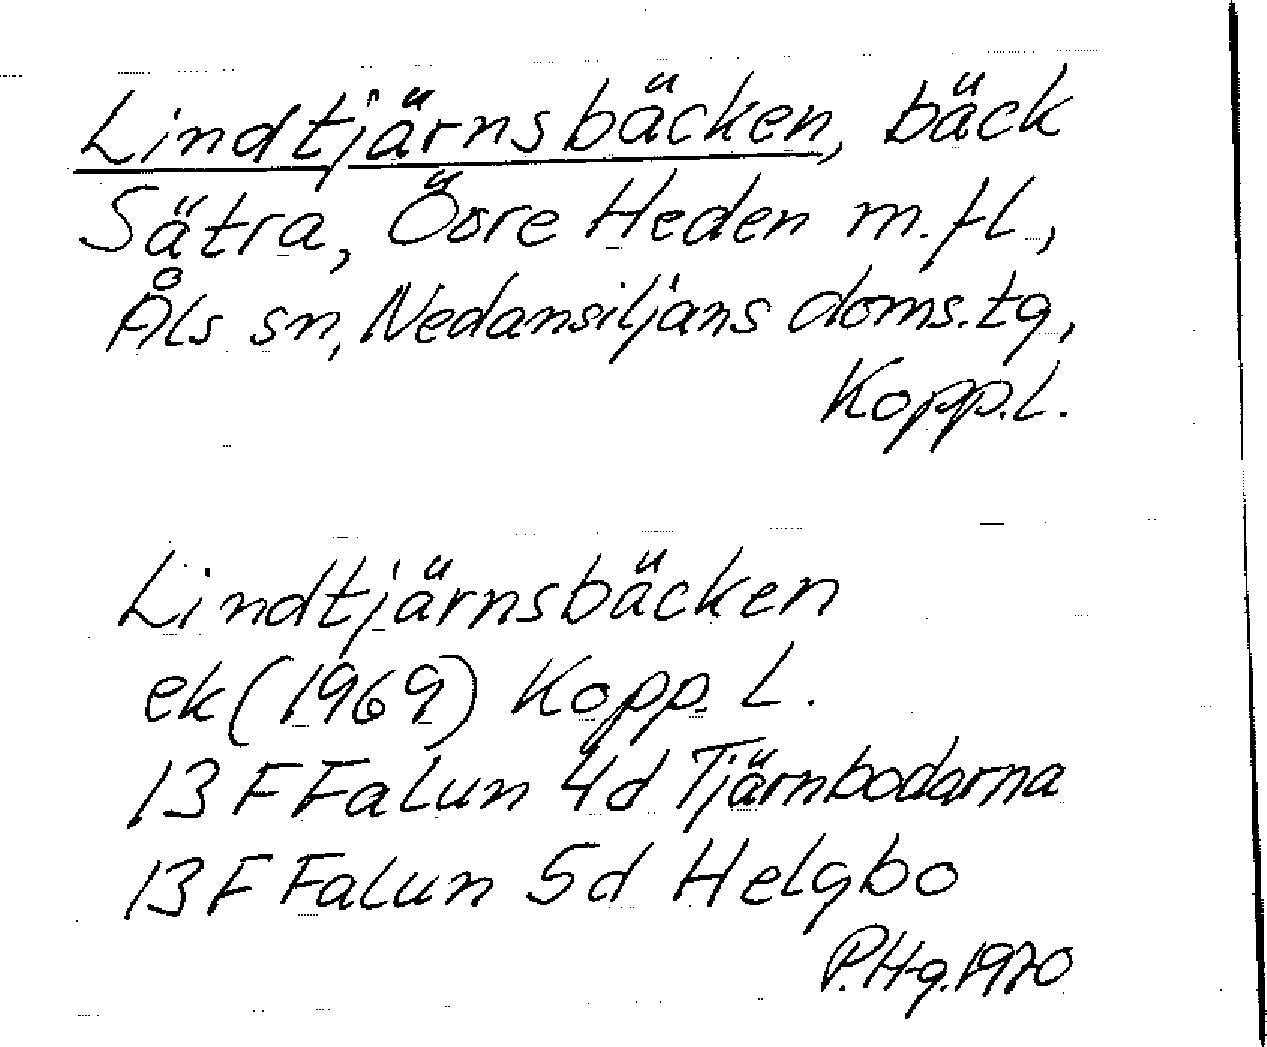 Lindtjärnsbäcken, bäck
Sätra, Övre Heden m.fl.,
Åls sn, Nedansiljans doms.tg,
Kopp.L.
Lindtjärnsbäcken
ek (1969) Kopp. L.
13 F Falun 4d Tjärnbodarna
13 F Falun 5d Helgbo
P.Hg.1970